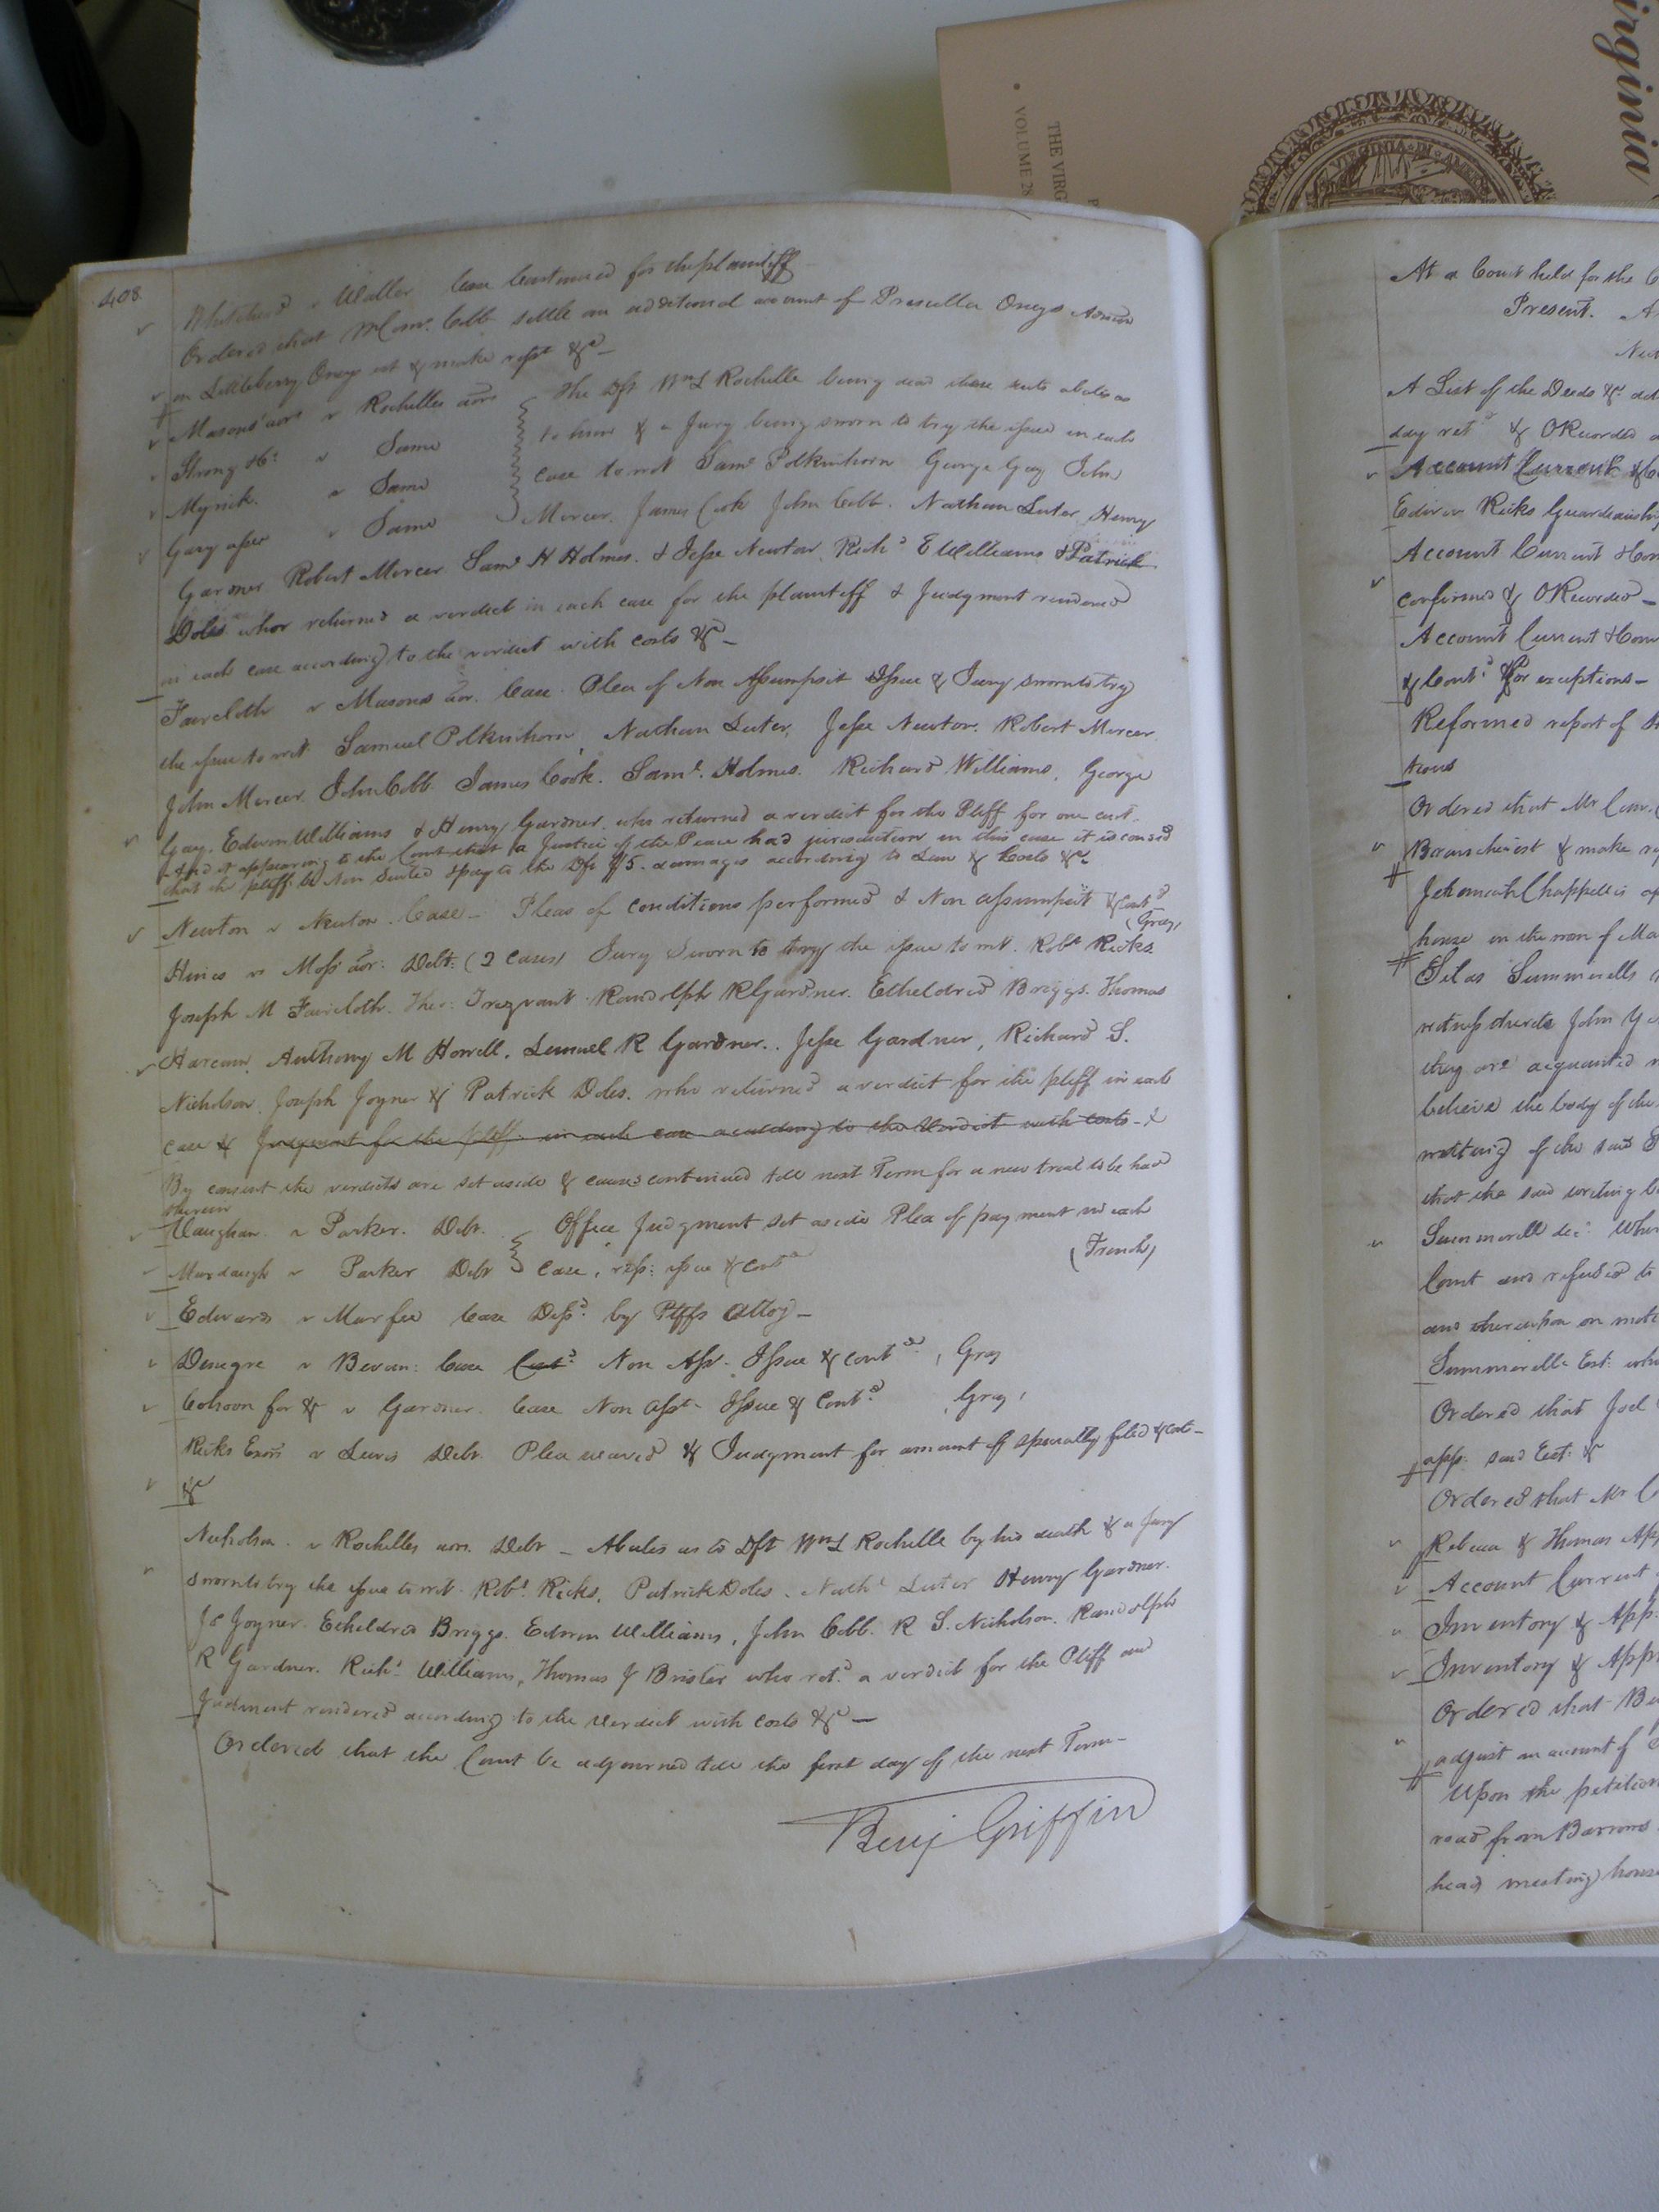 408
Whitehead v Waller Case Continued for the plaintiff
Ordered that Mr Comr. Cobb settle an additional account of Priscilla Oneys Admin
on Littleberry Oneys est & make rept &c
Masons' aor v Rochelles aors
Strong &c v Same
Myrick v Same
Gary assee v Same
The Dft Wm L Rochelle being dead these suits abates as
to him & a Jury being sworn to try the issue in each
case to wit Saml Polkinhorn George Gay John
Mercer, James Cook John Cobb. Nathan Luter, Henry
Gardner Robert Mercer Saml H Holmes. & Jesse Newton, Richd E Williams & Patrick
Doles who returned a verdict in each case for the plaintiff & Judgment rendered
in each case according to the verdict with costs &c
Faircloth v Masons aor. Case. Plea of Non Assumpsit Issue & Jury sworn to try
the issue to wit Samuel Polkinhorn, Nathan Luter, Jesse Newton. Robert Mercer
John Mercer John Cobb James Cook. Saml. Holmes. Richard Williams, George
Gay, Edwin Williams & Henry Gardner who returned a verdict for the Pltff for one cent
And it appearing to the Court that a Justice of the Peace had jurisdiction in this case it is consd
that the pltff be Non Suited & pay to the Dft $5. damages according to Law & Costs &c
Newton v Newton. Case - Pleas of conditions performed & Non assumpsit & Contd
(Gray)
Hines v Moss aor: Debt: (2 Cases) Jury Sworn to try the issue to wit. Robt Ricks
Joseph M Faircloth. Ther: Trezvant Randolph R Gardner. Etheldred Briggs. Thomas
Harcum, Anthony M Howell, Lemuel R Gardner. Jesse Gardner, Richard S.
Nicholson, Joseph Joyner & Patrick Doles. who returned a verdict for the pltff in each
case & Judgment for the pltff in each case according to the Verdict with costs - &
By consent the verdicts are set aside & causes continued till next Term for a new trial to be had
therein
Vaughan v Parker. Debt.
Murdaugh v Parker Debt
Office Judgment set aside Plea of payment in each
Case, rep: issue & Contd (French)
Edwards v Murfee Case Dissd. by Pltffs Attoy -
Denegre v Bevan: Case Contd. Non Ass. Issue & contd., Gray
Cohoon for & v Gardner. Case Non Asst - Issue & Contd. , Gray,
Ricks Exors v Lewis Debt. Plea waived & Judgment for amount of specialty filed & cost -
&c
Nicholson v Rochelles aors. Debt - Abates as to Dft Wm L Rochelle by his death & a Jury
sworn to try the issue to wit Robt. Ricks, Patrick Doles. Nathl Luter Henry Gardner.
Js Joyner. Etheldred Briggs. Edwin Williams, John Cobb. R S. Nicholson. Randolph
R Gardner. Richd. Williams, Thomas J Brister who retd. a verdict for the Pltff and
Judment rendered according to the Verdict with costs &c -
Ordered that the Court be adjourned till the first day of the next Term -
Benj Griffin
At a Court held for the C
Present.
A List of the Deeds &c
day retd & ORecorded
Account Current & C
Edwin Ricks Guardianship
Account Current & Com
confirmed & ORecorded -
Account Current & Com
& Contd for exceptions -
Reformed report of
tions
Ordered that Mr Comr.
& make re
Jehomiah Chappell is ap
house in the room of Ma
Silas Summerells
witness thereto John
they are acquainted
believe the body of the
writing of the said
that the said writing
Summerell decd Wher
Court and refused to
and thereupon on moti
Summerells Est:
Ordered that Joel
app: said Est: &
Ordered that Mr
Rebecca & Thomas
Account Current
Inventory & App:
Inventory & Appr
Ordered that Be
adjust an account of
Upon the petition
road from Barrows
head meeting house
irginia
THE VIRG
VOLUME 28
VIRGINIA IN AMER